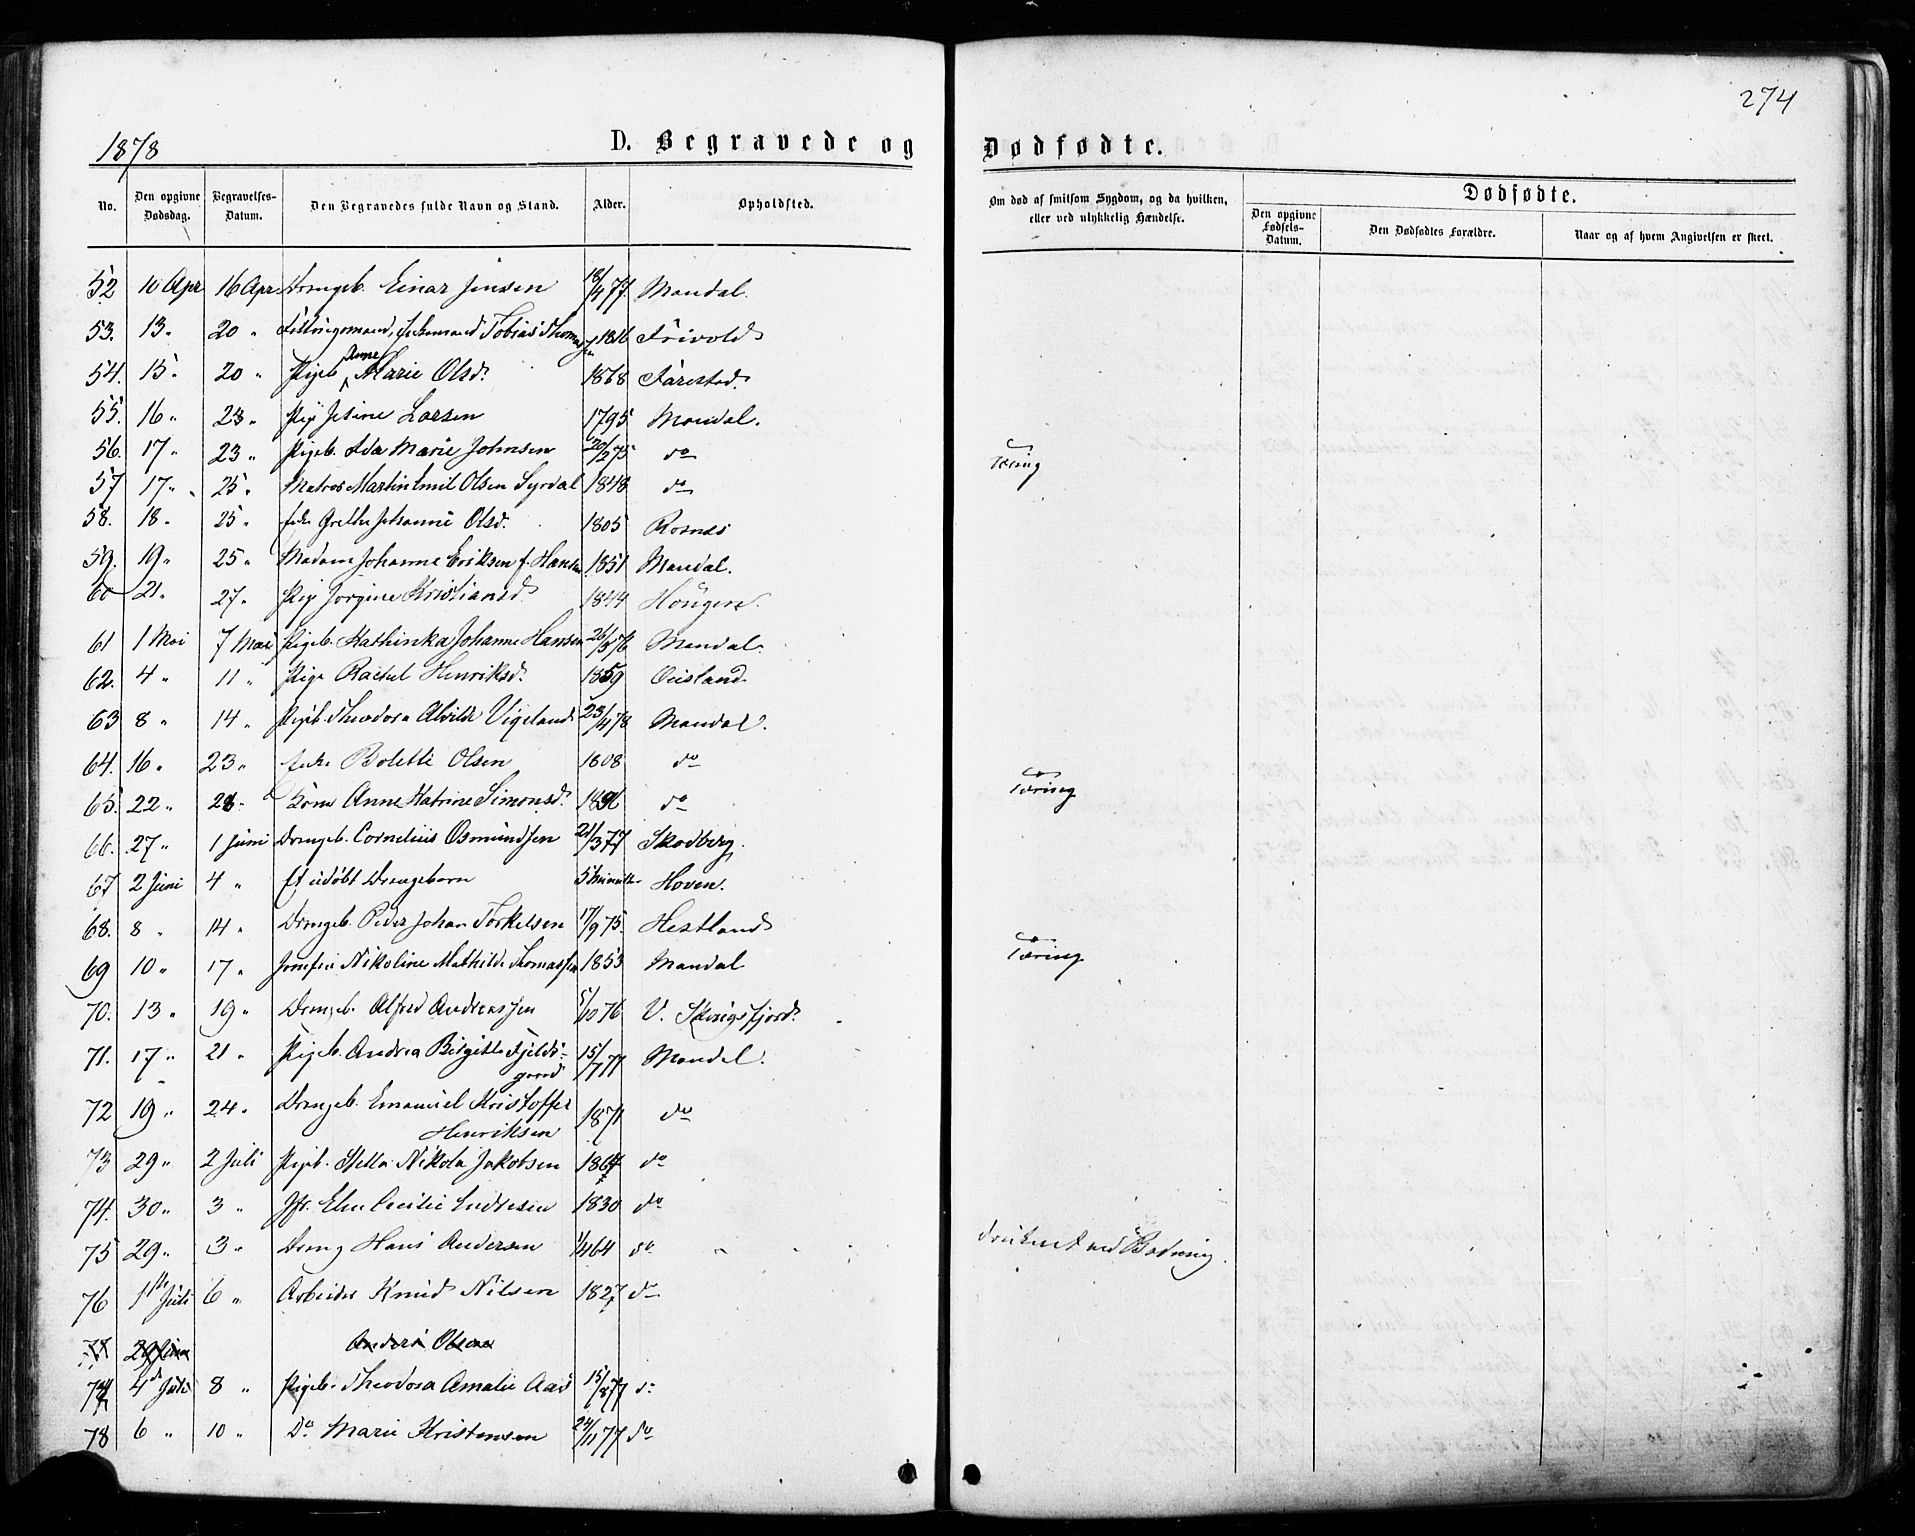 274
1878 D. Begravede og Dødfødte.
No. Den opgivne Dødsdag. Begravelses-Datum. Den Begravedes fulde Navn og Stand. Alder. Opholdsted. Om død af smitsom Sygdom, og da hvilken, eller ved ulykkelig Hændelse. Dødfødte.
Den opgivne Fødsels-Datum. Den Dødfødtes Forældre. Naar og af hvem Angivelsen er skeet.
52 10 Apr 16 Apr Drengeb. Einar Jensen 18/4 77 Mandal.
53. 13. 20 " Tobias Thomassen 1816 Frivold
54. 15 " 20 " Pigeb. Anne Marie Olsd. 1868 Færestad.
55. 16 " 23 " Pige Jesine Larsen 1795 Mandal.
56. 17 " 23 " Pigeb. Ada Marie Johnsen 20/2 75 do Tæring
57 17 " 25 " Matros Martin Emil Olsen Syrdal 1848 do
58. 18 " 25 " Enke Grethe Johanne Olsd. 1805 Rosnes
59. 19 " 25 " Madam Johanne Eriksen f. Hansen 1851 Mandal.
60 21 " 27 " Pige Jorgine Kristiansd. 1844 Hougen.
61 1 Mai 7 Mai Pigeb. Kathinka Johanne Hansen 26/5 76 Mandal.
62. 4 " 11 " Pige Rachel Henriksd. 1859 Oeisland
63 8 " 14 " Pigeb. Theodora Alvilde Vigeland 23/4 78 Mandal.
64. 16 " 23 " Enke Bolette Olsen 1808 do
65. 22 " 28 " Kone Anne Katrine Simonsd. do Tæring
66. 27 " 1 Juni Drengeb. Cornelius Osmundsen 21/3 77 Skodberg.
67 2 Juni 4 " Et udøbt Drengebarn 5 Minutter Hoven.
68. 8 " 14 " Drengeb. Peder Johan Torkelsen 17/9 75. Hestland
69 10 " 17 " Jomfru Nikoline Mathilde Thomassen 1853 Mandal Tæring
70. 13 " 19 " Drengeb. Alfred Andreassen 5/10 76 V. Skogsfjord.
71. 17 " 21 " Pigeb. Andrea Birgitte Fjelds-
gaard 15/7 77 Mandal.
72 19 " 24 " Drengeb. Emanuel Kristoffer
Henriksen 1871 do
73 29 " 2 Juli Pigeb. Stella Nikola Jakobsen 1864 do
74. 30 " 3 " Jfr. Elen Cecilie Endresen 1830 do
75 29 " 3 " Dreng Hans Andersen 1/4 64 do druknet ved Badning.
76 1ste Juli 6 " Arbeider Knud Nilsen 1827 do
77 29 Juni Anders Olsen
77 4de Juli 8 " Pigeb. Theodora Amalie Aas 15/8 77 do
78 6 " 10 " Do Marie Kristensen 24/11 77 do